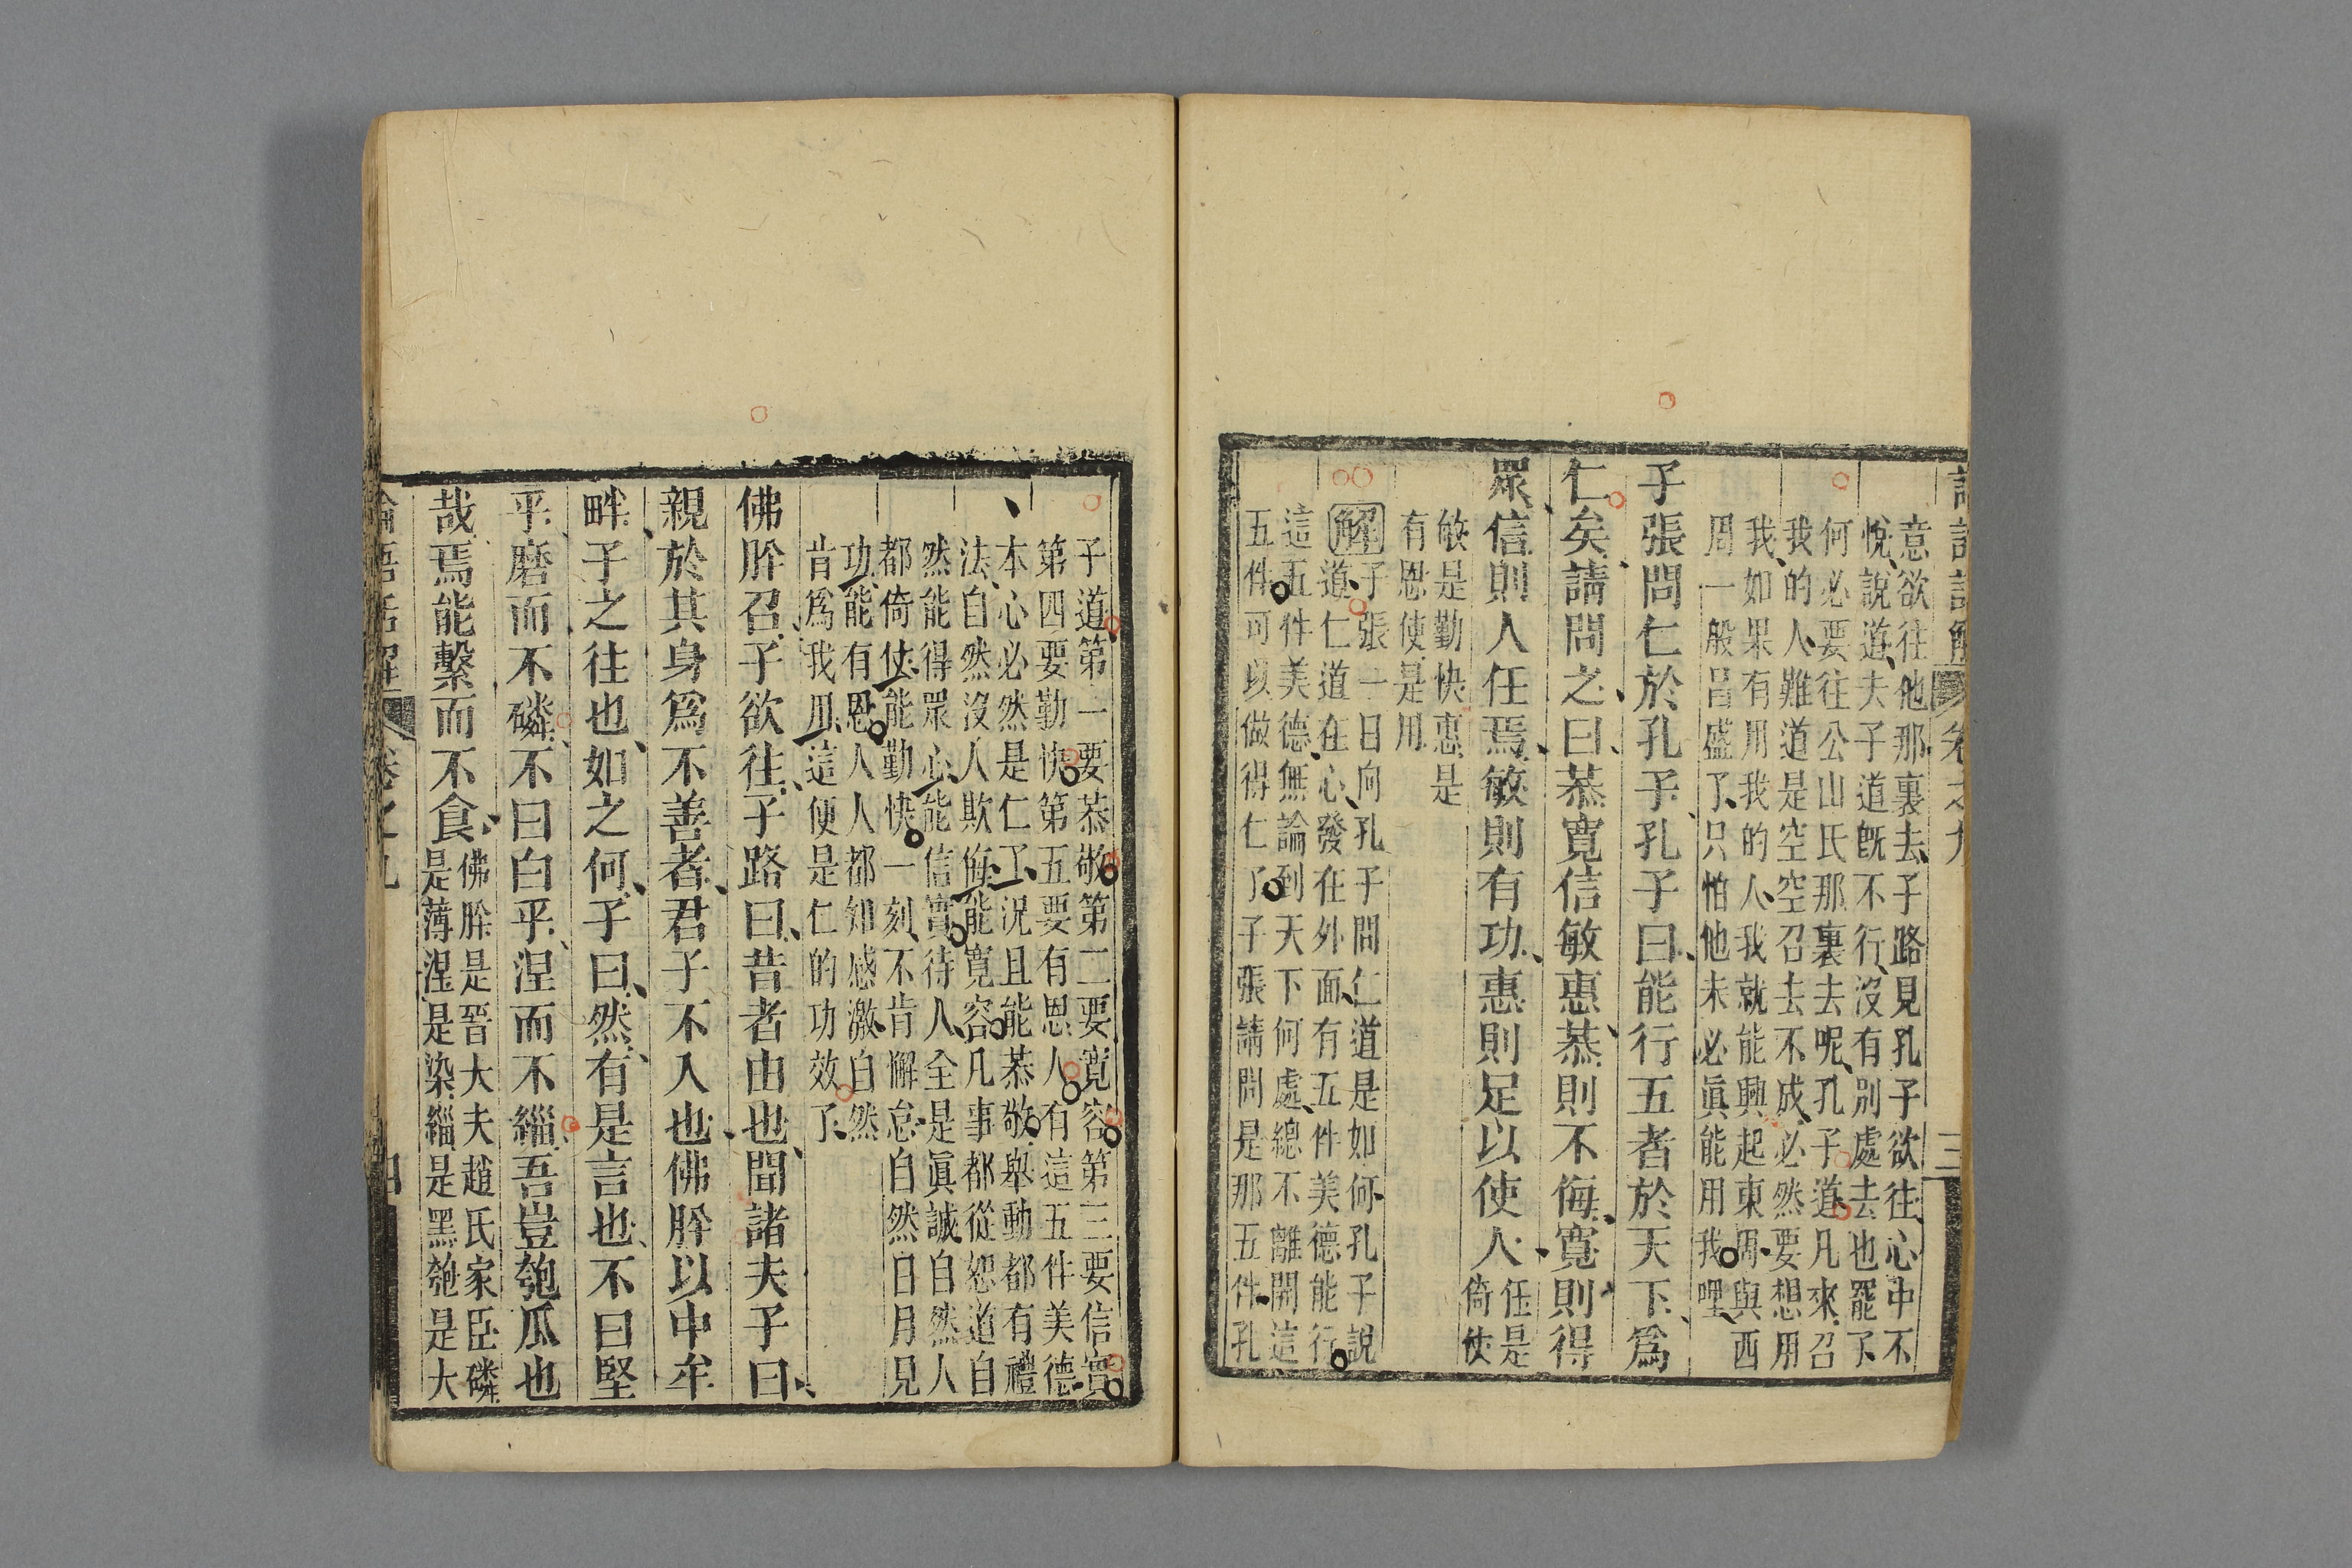 意欲往他那裏去子路見孔子欲往心中不
悅說道夫子道旣不行沒有別處去也罷了
何必要往公山氏那裏去呢孔子道凡來召
我的人難道是空空召去不成必然要想用
我如果有用我的人我就能興起東周與西
周一般昌盛了只怕他未必眞能用我哩
子張問仁於孔子孔子曰能行五者於天下爲
仁矣請問之曰恭寬信敏惠恭則不侮寬則得
眾信則人任焉敏則有功惠則足以使人任是
倚使
敏是勤快惠是
有恩使是用
解子張一日向孔子問仁道是如何孔子說
道仁道在心發在外面有五件美德能行
這五件美德無論到天下何處總不離開這
五件可以做得仁了子張請問是那五件孔
子道第一要恭敬第二要寬容第三要信實
第四要勤快第五要有恩人有這五件美德
本心必然是仁了況且能恭敬舉動都有禮
法自然沒人欺侮能寬容凡事都從恕道自
然能得眾心能信實待人全是眞誠自然人
都倚仗能勤快一刻不肯懈怠自然日月見
功能有恩人人都知感激自然
肯爲我用這便是仁的功效了
佛肸召子欲往子路曰昔者由也聞諸夫子曰
親於其身爲不善者君子不入也佛肸以中牟
畔子之往也如之何子曰然有是言也不曰堅
乎磨而不磷不曰白乎涅而不緇吾豈匏瓜也
哉焉能繫而不食佛肸是晉大夫趙氏家臣磷
是薄涅是染緇是黑匏是大
論語話解 卷之九